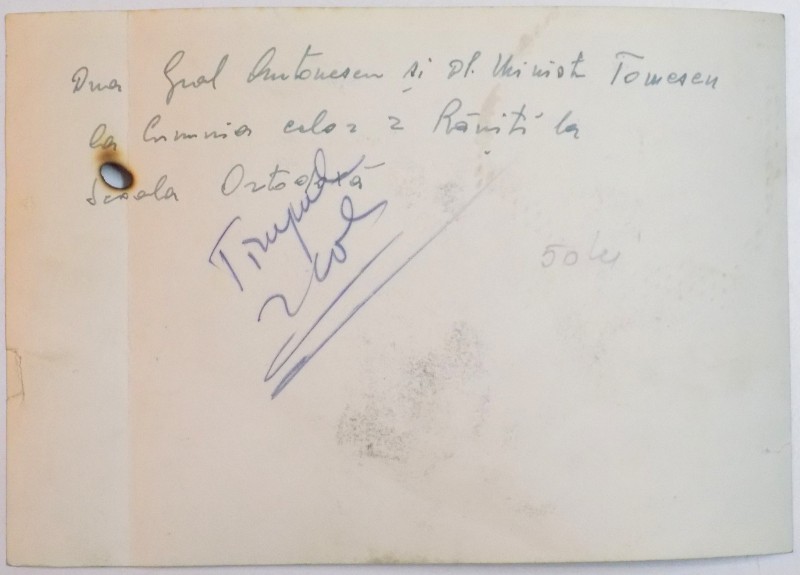 Dna Gral Antonescu și Dl. Ministr Tomescu
la Cununia celor 2 Răniți la
Școala Ortodoxă
Timpul
2 col
50 lei